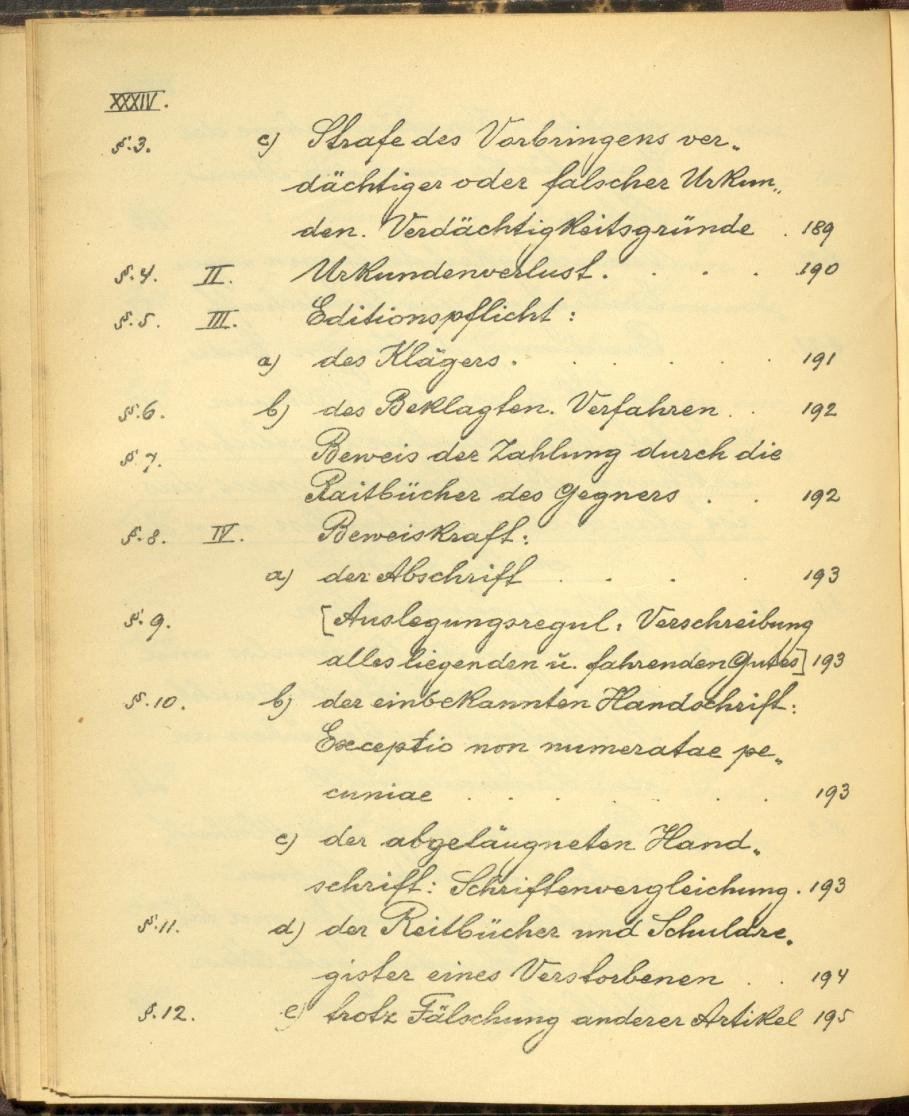 XXXIV.
§.3. c) Strafe des Vorbringens ver„
dächtiger oder falscher Urkun„
den. Verdächtigkeitsgründe . 189
§.4. II. Urkundenverlust. . . . . 190
§.5. III. Editionspflicht:
a) des Klägers . . . . . . 191
§.6. b) des Beklagten. Verfahren . . 192
§ 7. Beweis der Zahlung durch die
Raitbücher des Gegners . . 192
§.8. IV. Beweiskraft:
a) der Abschrift . . . . 193
§.9. [Auslegungsregul: Verschreibung
alles liegenden u. fahrenden Gutes] 193
§.10. b) der einbekannten Handschrift:
Exceptio non numeratae pe„
cuniae . . . . . . 193
c) der abgeläugneten Hand„
schrift: Schriftenvergleichung. 193
§.11. d) der Reitbücher und Schuldre„
gister eines Verstorbenen . . 194
§.12. e) trotz Fälschung anderer Artikel 195